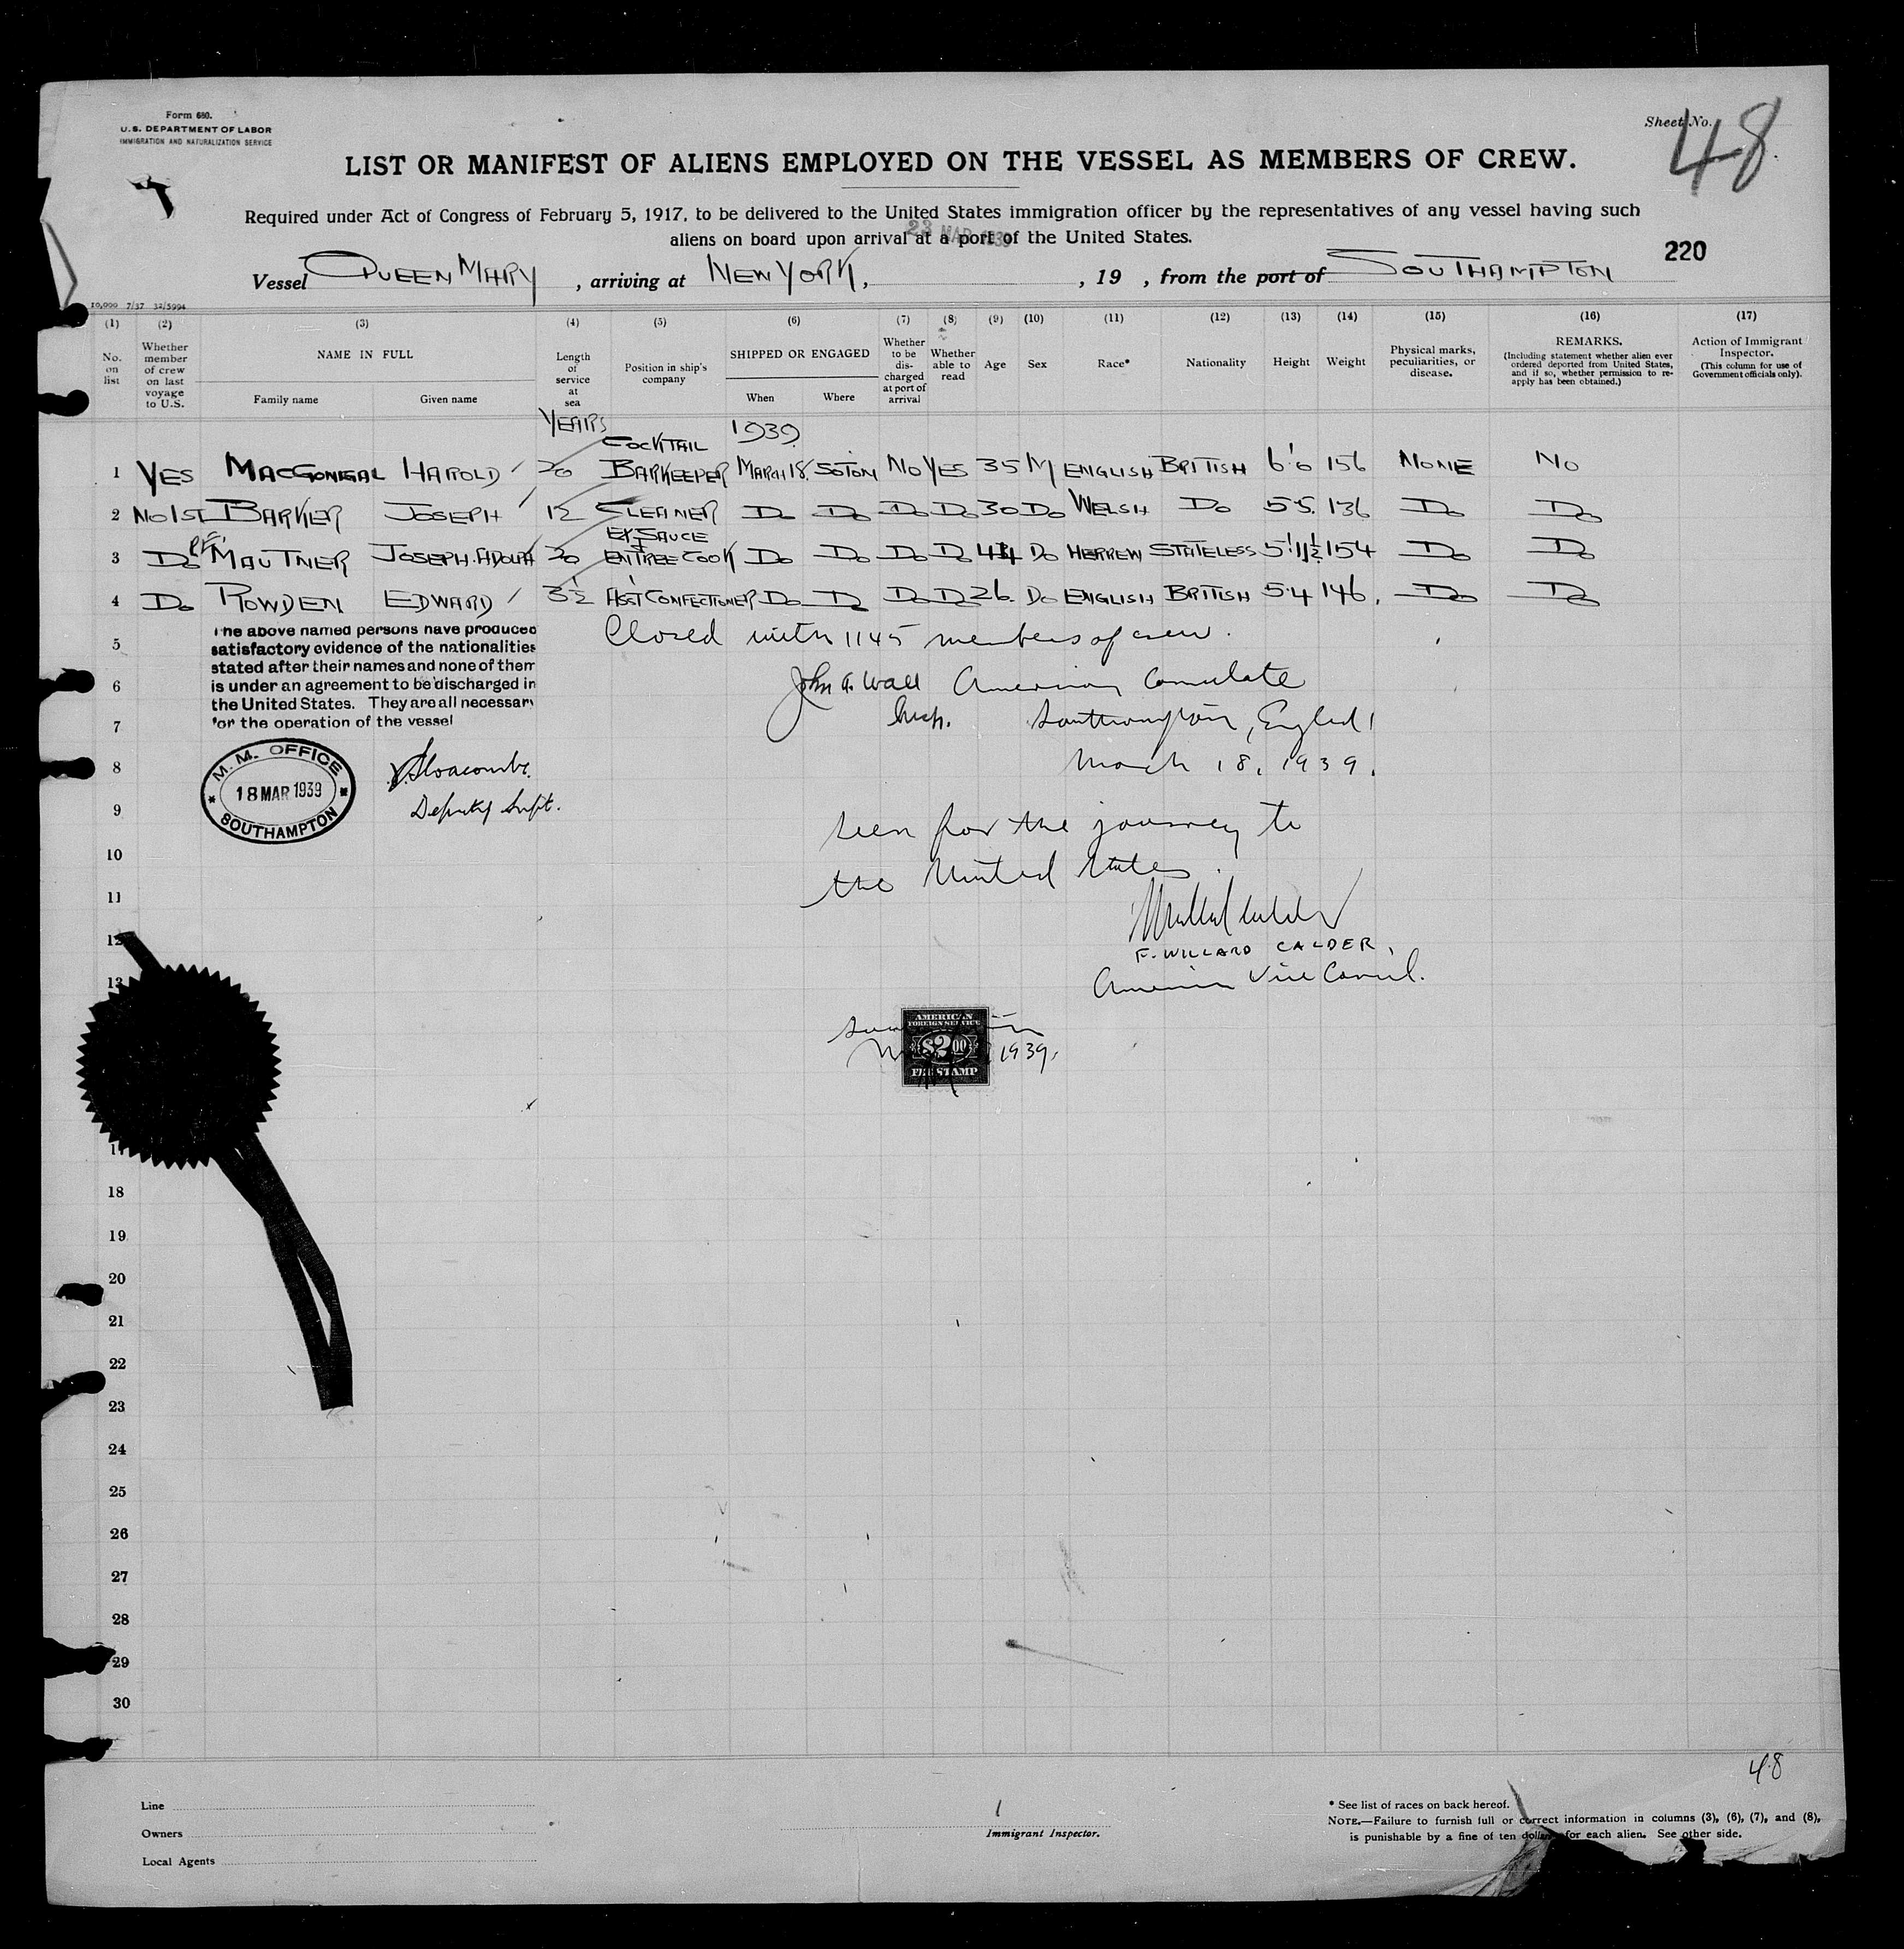 Form 680.
U.S. DEPARTMENT OF LABOR
IMMIGRATION AND NATURALIZATION SERVICE
Sheet No. 48
LIST OR MANIFEST OF ALIENS EMPLOYED ON THE VESSEL AS MEMBERS OF CREW.
Required under Act of Congress of February 5, 1917, to be delivered to the United States immigration officer by the representatives of any vessel having such
aliens on board upon arrival at a port of the United States.
23 MAR 1939
220
Vessel QUEEN MARY, arriving at NEW YORK, , 19 , from the port of SOUTHAMPTON
10,000 7/37 32/5994
(1) (2) (3) (4) (5) (6) (7) (8) (9) (10) (11) (12) (13) (14) (15) (16) (17)
No. on list
Whether member of crew on last voyage to U.S.
NAME IN FULL
Family name
Given name
Length of service at sea
Position in ship's company
SHIPPED OR ENGAGED
When
Where
Whether to be discharged at port of arrival
Whether able to read
Age
Sex
Race*
Nationality
Height
Weight
Physical marks, peculiarities, or disease.
REMARKS.
(Including statement whether alien ever ordered deported from United States, and if so, whether permission to reapply has been obtained.)
Action of Immigrant Inspector.
(This column for use of Government officials only).
YEARS 1939
COCKTAIL
1 YES MACGONIGAL HAROLD 20 BARKEEPER MARCH 18. SOTON NO YES 35 M ENGLISH BRITISH 6'0 156 NONE NO
2 NO 1ST BARKER JOSEPH 1½ CLEANER DO DO DO DO 30 DO WELSH DO 5'5. 136 DO DO
EX SAUCE
3 DO MAUTNER JOSEPH. ADOLPH 20 ENTREE COOK DO DO DO DO 44 DO HEBREW STATELESS 5'11½ 154 DO DO
4 DO ROWDEN EDWARD 3½ ASST CONFECTIONER DO DO DO DO 26. DO ENGLISH BRITISH 5.4 146. DO DO
The above named persons have produced
satisfactory evidence of the nationalities
stated after their names and none of them
is under an agreement to be discharged in
the United States. They are all necessary
for the operation of the vessel
5 Closed with 1145 members of crew.
6 John A. Wall American Consulate
7 Southampton, England
8 March 18, 1939.
M.M. OFFICE
18 MAR 1939
SOUTHAMPTON
Deputy Supt.
9
seen for the journey to
10
the United States.
11
12
F. WILLARD CALDER,
13
American Vice Consul.
AMERICAN
FOREIGN SERVICE
$2.00
FEE STAMP
1939.
18
19
20
21
22
23
24
25
26
27
28
29
30
48
Line
Owners
Local Agents
Immigrant Inspector.
* See list of races on back hereof.
NOTE.—Failure to furnish full or correct information in columns (3), (6), (7), and (8),
is punishable by a fine of ten dollars for each alien. See other side.